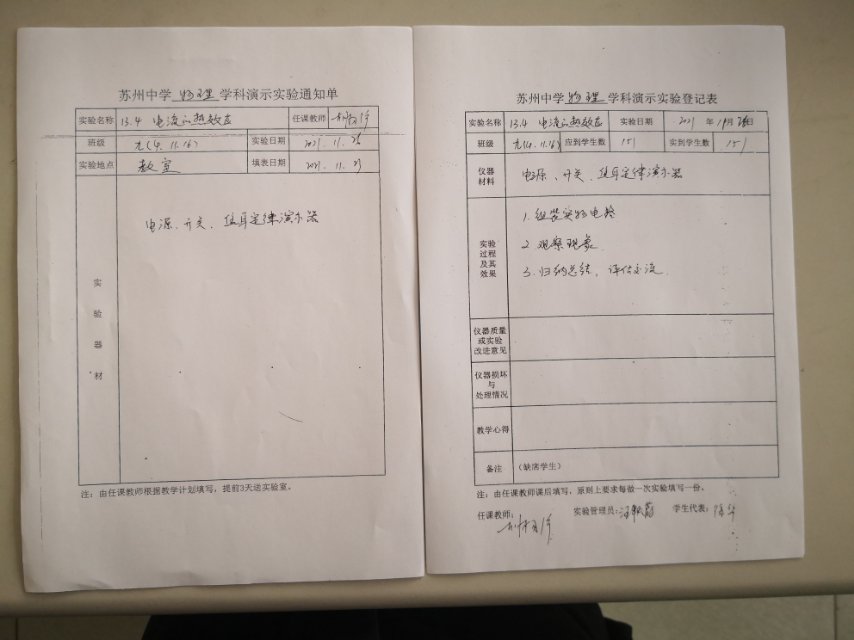 苏州中学 物理 学科演示实验通知单
实验名称 13.4 电流的热效应 任课教师
班级 九(4、11、16) 实验日期 2021.11.26
实验地点 教室 填表日期 2021.11.23
实验器材 电源、开关、焦耳定律演示器
注：由任课教师根据教学计划填写，提前3天送实验室。
苏州中学 物理 学科演示实验登记表
实验名称 13.4 电流的热效应 实验日期 2021 年 11月 26日
班级 九(4、11、16) 应到学生数 151 实到学生数 151
仪器材料 电源、开关、焦耳定律演示器
实验过程及其效果
1. 组装实物电路
2. 观察现象
3. 归纳总结、评估交流
仪器质量或实验改进意见
仪器损坏与处理情况
教学心得
备注 （缺席学生）
注：由任课教师课后填写，原则上要求每做一次实验填写一份。
任课教师： 实验管理员： 学生代表：